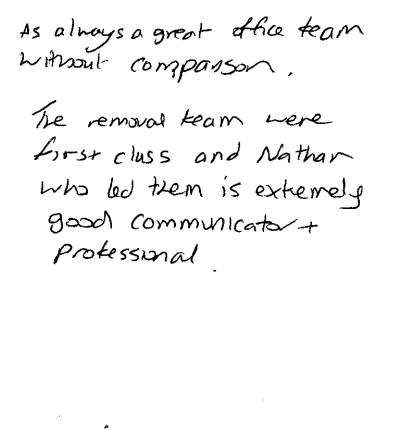 As always a great office team
without comparison.
The removal team were
first class and Nathan
who led them is extremely
good communicator +
professional.